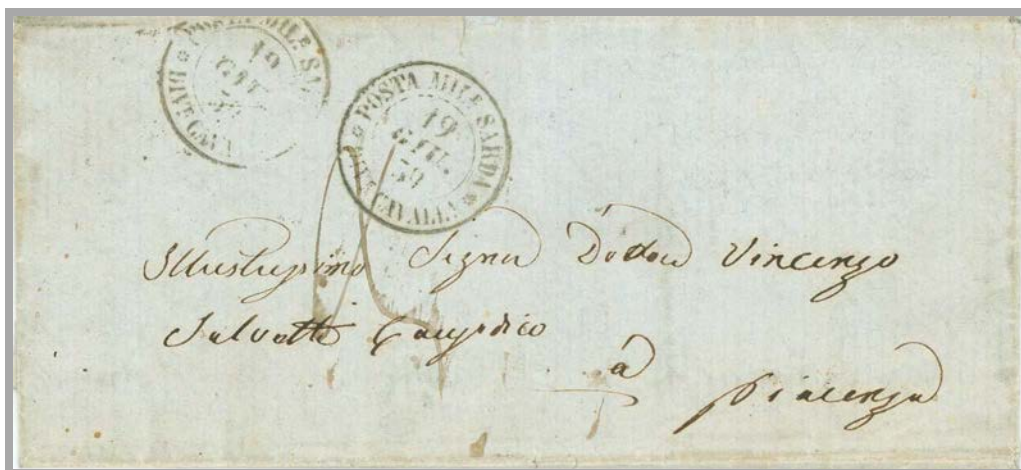 POSTA MIL.E SA
19
59
DIV.E CAVA
POSTA MIL.E SARDA
19
GIU.
59
DIV.E CAVALLA
Illustrissimo Signor Dottor Vincenzo
Salvotti Causidico
à
Piacenza